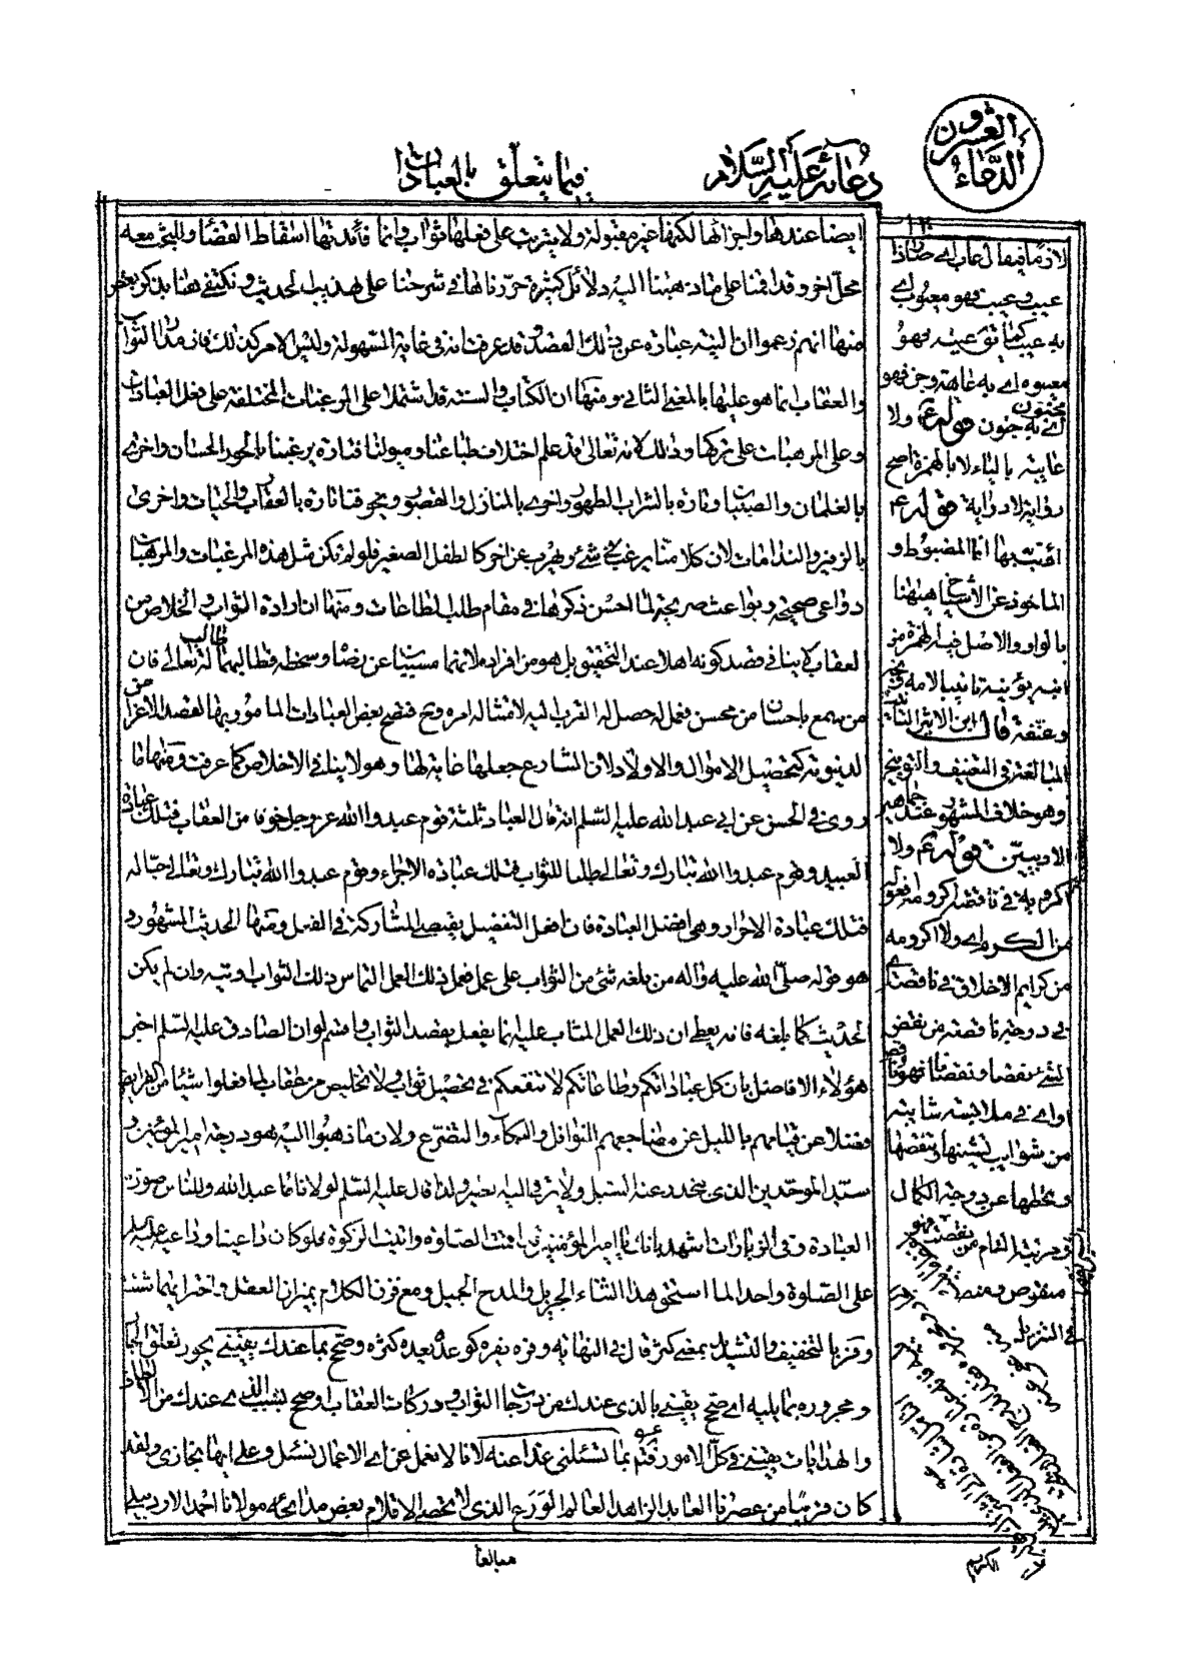 الدعاء العشرون
دعائه عليه السلام
فيما يتعلق بالعبادات
ايضا عندها واجزائها لكنها غير مقبولة ولا يترتب على فعلها ثواب وانما فائدتها اسقاط القضاء وللبحث معه
محل آخر وقد اقمنا على ما ذهبنا اليه دلائل كثيرة حررناها في شرحنا على تهذيب الحديث ونكتفي هنا بذكر بعض
منها انهم زعموا ان النية عبادة عن ذلك القصد قد عرفت انه في غاية السهولة وليس الامر كذلك فان مدار الثواب
والعقاب انما هو عليها بالمعنى الثاني ومنها ان الكتاب والسنة قد اشتملا على المرغبات المختلفة على فعل العبادات
وعلى المرهبات على تركها وذلك لانه تعالى قد علم اختلاف طباعنا وميولنا فتارة يرغبنا بالحور الحسان واخرى
بالغلمان والصبيان وتارة بالشراب الطهور واخرى بالمنازل والقصور ويخوفنا تارة بالعقارب والحيات واخرى
بالزفير والندامات لان كلا منا يرغب في شيء ويهرب عن اخر كالطفل الصغير فلو لم تكن مثل هذه المرغبات والمرهبات
دواعي صحيحة وبواعث صريحة لما احسن ذكرها في مقام طلب الطاعات ومنها ان ارادة الثواب والخلاص من
العقاب لا ينافي قصد كونه اهلا عند التحقيق بل هو من افراده لانهما مسببان عن رضاه وسخطه فطالبهما طالب له تعالى فان
من سمع باحسان من محسن فعمل له حصل له القرب اليه لامتثاله امره وح فتصح بعض العبادات المامور بها لقصد الاغراض
الدنيوية كتحصيل الاموال والاولاد لان الشارع جعلها غاية لها وهو لا ينافي الاخلاص كما عرفت ومنها ما
روي في الحسن عن ابي عبد الله عليه السلم انه قال العباد ثلثة قوم عبدوا الله عز وجل خوفا من العقاب فتلك عبادة
العبيد وقوم عبدوا الله تبارك وتعالى طلبا للثواب فتلك عبادة الاجراء وقوم عبدوا الله تبارك وتعالى حبا له
فتلك عبادة الاحرار وهي افضل العبادة فان افعل التفضيل يقتضي المشاركة في الفضل ومنها الحديث المشهور و
هو قوله صلى الله عليه واله من بلغه شئ من الثواب على عمل فعمل ذلك العمل التماس ذلك الثواب اوتيه وان لم يكن
الحديث كما بلغه فانه يعطي ان ذلك العمل المثاب عليه انما يفعل بقصد الثواب واقسم لو ان الصادق عليه السلم اخبر
هؤلاء الافاضل بان كل عباداتكم وطاعاتكم لا تنفعكم في تحصيل ثواب ولا تخليص من عقاب لما فعلوا شيئا من الفرائض
فضلا عن قيامهم بالليل عن مضاجعهم النوافل والبكاء والتضرع ولان ما ذهبوا اليه هو درجة امير المؤمنين و
سيد الموحدين الذي ينحدر عنه السيل ولا يرقى اليه الطير ولذا قال عليه السلم لولانا ما عبد الله وللناس صورة
العبادة وفي الزيارات اشهد بانك يا امير المؤمنين قد اقمت الصلوة واتيت الزكوة فلو كان داعينا وداعيه عليه السلم
على الصلوة واحدا لما استحق هذا الثناء الجزيل والمدح الجميل ومع فزن الكلام بميزان العقل واختر ايهما شئت
وفر بالتخفيف والتشديد بمعنى كثر قال في النهاية وفره يفره كوعده يعده كثره وصح بما عندك يقيني يجوز تعلق الجار
ومجروره بما يليه اي صح يقيني بالذي عندك من درجات الثواب ودركات العقاب وصح بسبب الذي عندك من الالطاف
والهدايات يقيني في كل الامور قوله بما تسئلني غدا عنه لانا لا نغفل عن اي الاعمال نسئل وعلى ايها نجازي ولقد
كان قريبا من عصرنا العابد الزاهد العالم الورع الذي لا تحصي الاقلام بعض مدايحه مولانا احمد الاردبيلي
مبالغا
١٢
لازما فيقال عاب اي صار ذا
عيب وعيب فهو معيوب اي
به عيب
معيوه اي به عاهة وجن فهو
مجنون
اي به جنون قوله ع ولا
عايبة بالياء لا بالهمزة اصح
رواية لا دراية قوله ع
اؤنب بها انما المضبوط و
الماخوذ عن الاشياخ هيهنا
بالواو والاصل فيه الهمزة من
انبه يؤنبه تانيبا لامه ووبخه
وعنفه قال ابن الاثير التانيب
المبالغة في التعنيف والتوبيخ
وهو خلاف المشهور عند جماهير
الادبيين قوله ع ولا
اكرومة في ناقصة اكرومة افعولة
من الكرم اي ولا اكرومة
من كرايم الاخلاق في ناقصة اي
في درجة ناقصة من نقص
الشئ نقصا ونقصانا فهو ناقص
او اي في ملابسة شايبة
من شوايب تشينها وتنقصها
وتحطها عن درجة الكمال
وحريز التمام من نقصته فهو
منقوص ومنه
في التنزيل
الكريم